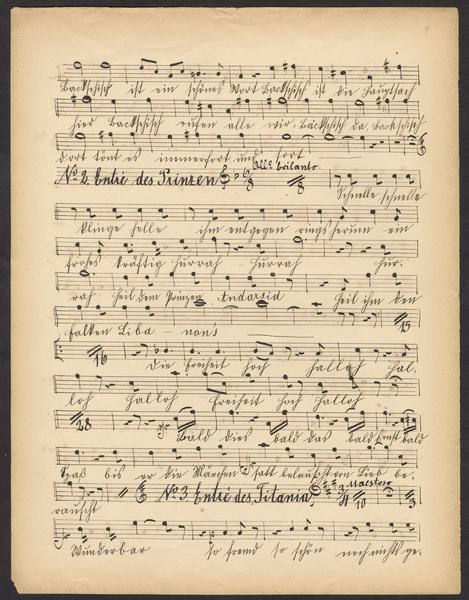 4
Backschisch ist ein schönes Wort Backschisch ist die Hauptsach
hier Backschisch rufen alle wir. Backschisch da, Backschisch
dort tönt es immerfort und fort
No 2. Entre des Prinzen All° brilante
Schnelle schnelle
klinge helle ihm entgegen rings herum ein
frohes kräftig hurrah hurrah hur-
rah heil dem Prinzen Andarsid heil ihm den
Falken Liba - non's 15
16 Die Freiheit hoch halloh hal-
loh halloh Freiheit hoch halloh
28 Bald dies bald das bald Ernst bald
Spaß bis er die Märchen satt belauscht von Lieb be-
rauscht No 3. Entre des Titania Maestoso 3/4 10 3
Wunderbar so fremd so schön noch nichts ge-